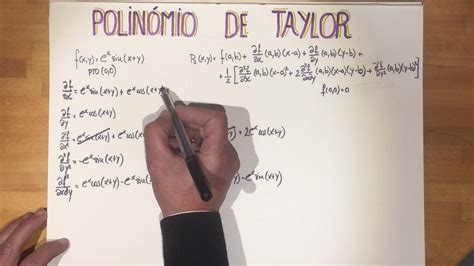 POLINÓMIO DE TAYLOR
f(x,y)=e^x sin(x+y)
PTO (0,0)
P₂(x,y)= f(a,b)+∂f/∂x(a,b)(x-a)+∂f/∂y(a,b)(y-b)+
+1/2[∂²f/∂x(a,b)(x-a)²+2∂²f/∂x∂y(a,b)(x-a)(y-b)+∂²f/∂y²(a,b)(y-b)²]
f(0,0)=0
∂f/∂x = e^x sin(x+y)+e^x cos(x+
∂f/∂y = e^x cos(x+y)
= e^x sin(x+y)+e^x cos = 2e^x cos(x+y)
= -e^x sin(x+y)
= e^x cos(x+y)-e^x si -e^x sin(x+y)